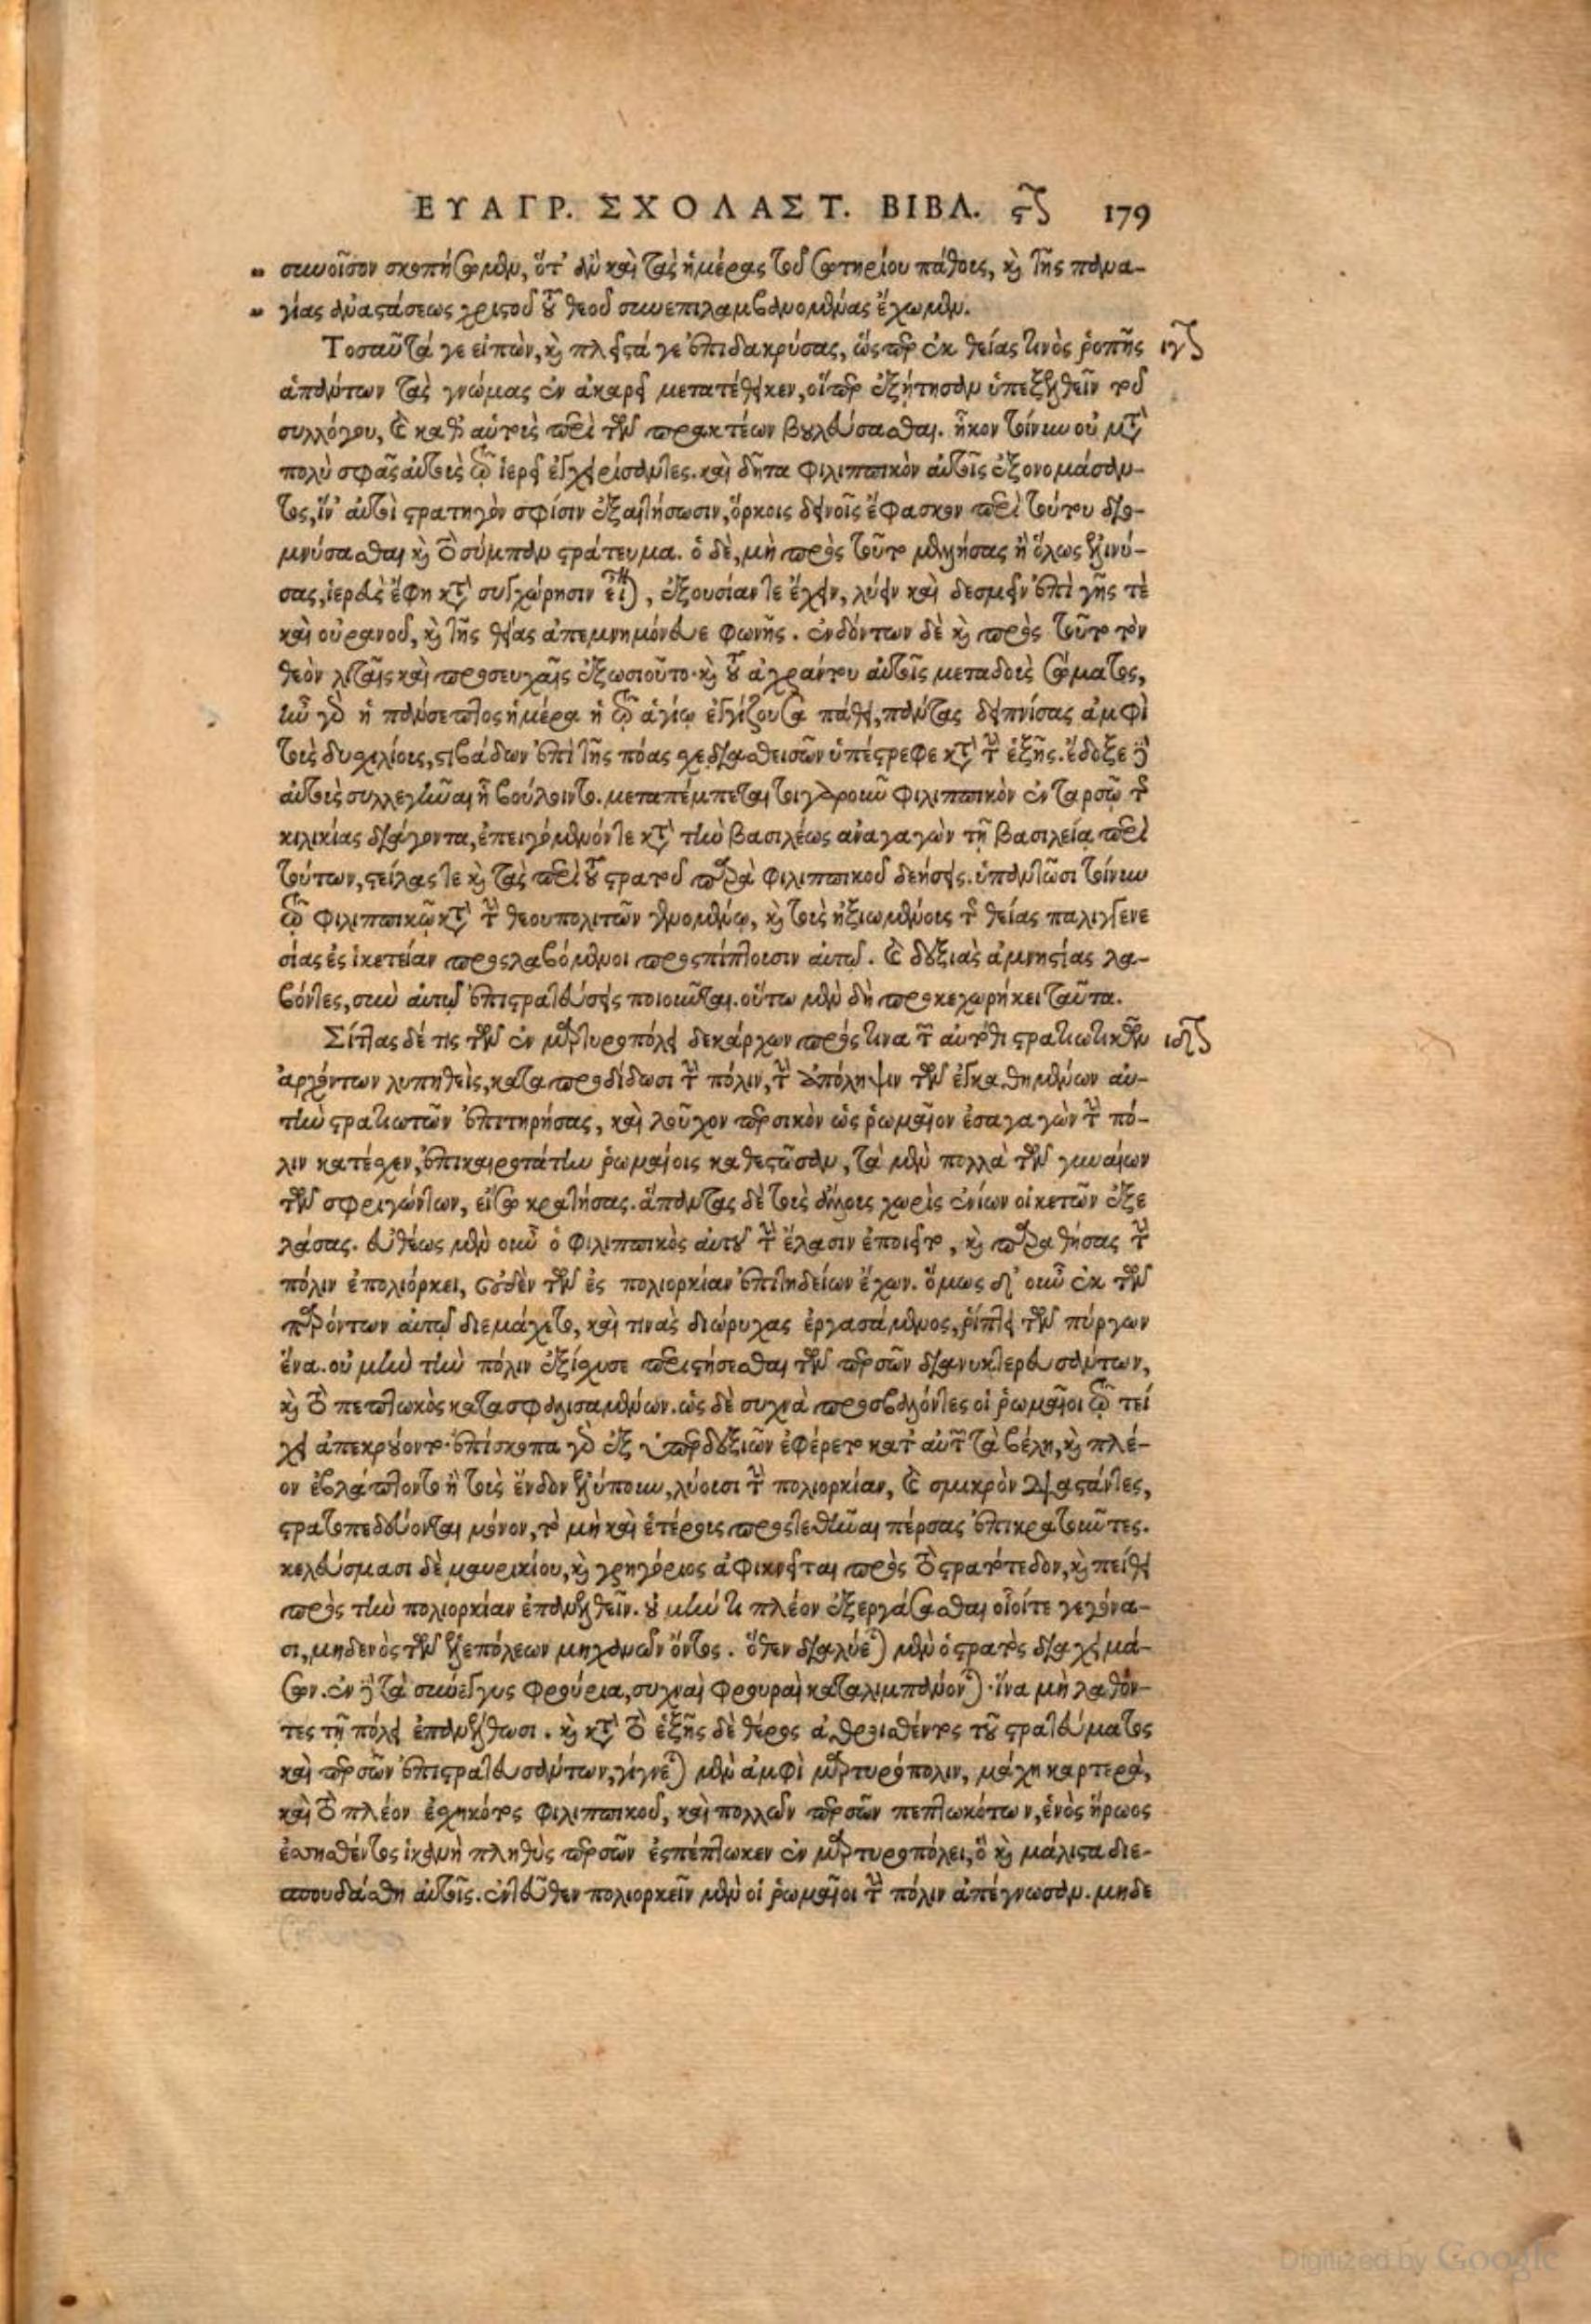 ΕΥΑΓΡ. ΣΧΟΛΑΣΤ. ΒΙΒΛ. ϛʹ 179
συνοῖσον σκοπήσωμεν, ὅτ' ἂν καὶ τὰς ἡμέρας τοῦ σωτηρίου πάθους, καὶ τῆς πανα-
γίας ἀναστάσεως χριστοῦ τοῦ θεοῦ συνεπιλαμβανομένας ἔχωμεν.
Τοσαῦτά γε εἰπὼν, καὶ πλεῖστά γε ἐπιδακρύσας, ὥσπερ ἐκ θείας τινὸς ῥοπῆς ιγʹ
ἁπάντων τὰς γνώμας ἐν ἀκαρεῖ μετατέθεικεν, οἵπερ ἐξῄτησαν ὑπεξελθεῖν τοῦ
συλλόγου, καὶ καθ' αὑτοὺς περὶ τῶν πρακτέων βουλεύσασθαι. ἧκον τοίνυν οὐ μετὰ
πολὺ σφᾶς αὐτοὺς τῷ ἱερεῖ ἐγχειρίσαντες. καὶ δῆτα Φιλιππικὸν αὐτοῖς ἐξονομάσαν-
τος, ἵν' αὐτοὶ στρατηγὸν σφίσιν ἐξαιτήσωσιν, ὅρκοις δεινοῖς ἔφασκον περὶ τούτου διο-
μνύσασθαι καὶ τὸ σύμπαν στράτευμα. ὁ δὲ, μὴ πρὸς τοῦτο μελλήσας ἢ ὅλως ἐλινύ-
σας, ἱερεὺς ἔφη κατὰ συγχώρησιν εἶναι, ἐξουσίαν τε ἔχειν, λύειν καὶ δεσμεῖν ἐπὶ γῆς τὲ
καὶ οὐρανοῦ, καὶ τῆς θείας ἀπεμνημόνευε φωνῆς. ἐνδόντων δὲ καὶ πρὸς τοῦτο τὸν
θεὸν λιταῖς καὶ προσευχαῖς ἐξωσιοῦτο. καὶ τοῦ ἀχράντου αὐτοῖς μεταδοὺς σώματος,
ἦν γὰρ ἡ πανσεπτος ἡμέρα ἡ τῷ ἁγίῳ ἐγγίζουσα πάθει, πάντας δειπνίσας ἀμφὶ
τοὺς δισχιλίους, στιβάδων ἐπὶ τῆς πόας σχεδιασθεισῶν ὑπέστρεφε κατὰ τὴν ἑξῆς. ἔδοξε δὲ
αὐτοὺς συλλεγῆναι ᾗ βούλοιντο. μεταπέμπεται τοιγαροῦν Φιλιππικὸν ἐν ταρσῷ τῆς
κιλικίας διάγοντα, ἐπειγόμενόν τε κατὰ τὴν βασιλέως ἀναγαγὼν τῇ βασιλείᾳ περὶ
τούτων, στείλας τε καὶ τὰς περὶ τοῦ στρατοῦ παρὰ Φιλιππικοῦ δεήσεις. ὑπαντῶσι τοίνυν
τῷ Φιλιππικῷ κατὰ τὴν θεουπολιτῶν γενομένῳ, καὶ τοὺς ἠξιωμένους τῆς θείας παλιγγενε
σίας ἐς ἱκετείαν προσλαβόμενοι προσπίπτουσιν αὐτῷ. καὶ δεξιὰς ἀμνηστίας λα-
βόντες, σὺν αὐτῷ ἐπιστρατεύσεις ποιοῦνται. οὕτω μὲν δὴ προκεχωρήκει ταῦτα.
Σίττας δέ τις τῶν ἐν μαρτυροπόλει δεκάρχων πρός τινα τῶν αὐτόθι στρατιωτικῶν ιδʹ
ἀρχόντων λυπηθεὶς, καταπροδίδωσι τὴν πόλιν, τὴν ἀπόληψιν τῶν ἐγκαθημένων αὐ-
τὴν στρατιωτῶν ἐπιτηρήσας, καὶ λοῦχον περσικὸν ὡς ῥωμαῖον ἐσαγαγὼν τὴν πό-
λιν κατέσχεν, ἐπικαιροτάτην ῥωμαίοις καθεστῶσαν, τὰ μὲν πολλὰ τῶν γυναίων
τῶν σφριγώντων, εἴσω κρατήσας. ἅπαντας δὲ τοὺς ἄλλους χωρὶς ἐνίων οἰκετῶν ἐξε
λάσας. εὐθέως μὲν οὖν ὁ Φιλιππικὸς αὐτοῦ τὴν ἔλασιν ἐποιεῖτο, καὶ παραθήσας τὴν
πόλιν ἐπολιόρκει, οὐδὲν τῶν ἐς πολιορκίαν ἐπιτηδείων ἔχων. ὅμως δ' οὖν ἐκ τῶν
παρόντων αὐτῷ διεμάχετο, καὶ τινὰς διώρυχας ἐργασάμενος, ῥίπτει τῶν πύργων
ἕνα. οὐ μὴν τὴν πόλιν ἐξίσχυσε περιστήσεσθαι τῶν περσῶν διανυκτερευσάντων,
καὶ τὸ πεπτωκὸς κατασφαλισαμένων. ὡς δὲ συχνὰ προσβαλόντες οἱ ῥωμαῖοι τῷ τεί
χει ἀπεκρούοντο. ἐπίσκοπα γὰρ ἐξ ὑπερδεξιῶν ἐφέρετο κατ' αὐτῶν τὰ βέλη, καὶ πλέ-
ον ἐβλάπτοντο ἢ τοὺς ἔνδον ἐλύπουν, λύουσι τὴν πολιορκίαν, καὶ σμικρὸν διαστάντες,
στρατοπεδεύονται μόνον, τὸ μὴ καὶ ἑτέρους προστεθῆναι πέρσας ἐπικρατοῦντες.
κελεύσμασι δὲ μαυρικίου, καὶ γρηγόριος ἀφικνεῖται πρὸς τὸ στρατόπεδον, καὶ πείθει
πρὸς τὴν πολιορκίαν ἐπανελθεῖν. οὐ μὴν τι πλέον ἐξεργάσασθαι οἷοίτε γεγόνα-
σι, μηδενὸς τῶν ἑλεπόλεων μηχανῶν ὄντος. ὅθεν διαλύεται μὲν ὁ στρατὸς διαχειμά-
σων. ἐν δὲ τὰ σύνεγγυς φρούρια, συχναὶ φρουραὶ καταλιμπάνονται. ἵνα μὴ λαθόν-
τες τῇ πόλει ἐπανέλθωσι. καὶ κατὰ τὸ ἑξῆς δὲ θέρος ἀθροισθέντος τοῦ στρατεύματος
καὶ περσῶν ἐπιστρατευσάντων, γίγνεται μὲν ἀμφὶ μαρτυρόπολιν, μάχη καρτερὰ,
καὶ τὸ πλέον ἐσχηκότος Φιλιππικοῦ, καὶ πολλῶν περσῶν πεπτωκότων, ἑνὸς ἥρωος
ἐσηθέντος ἱκανὴ πληθὺς περσῶν ἐσπέπτωκεν ἐν μαρτυροπόλει, ὃ καὶ μάλιστα διε-
σπουδάσθη αὐτοῖς. ἐντεῦθεν πολιορκεῖν μὲν οἱ ῥωμαῖοι τὴν πόλιν ἀπέγνωσαν. μηδε
Digitized by Google